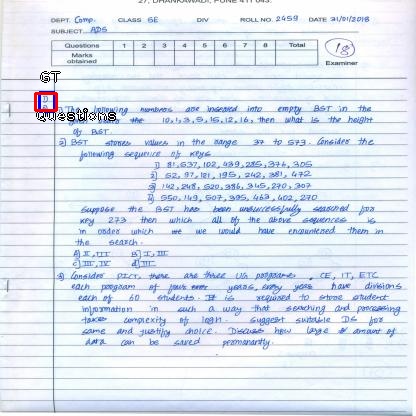 27, DHANKAWADI, PUNE 411 043.
DEPT. Comp. CLASS SE DIV ROLL NO. 2459 DATE 31/01/2018
SUBJECT ADS
Questions 1 2 3 4 5 6 7 8 Total
Marks obtained
18
Examiner
GT
Questions
1) The following numbers are inserted into empty BST in the
10, 1, 3, 5, 15, 12, 16, then what is the height
of BST.
2) BST stores values in the range 37 to 573. Consider the
following sequence of keys
1) 81, 537, 102, 439, 285, 376, 305
2) 52, 97, 121, 195, 242, 381, 472
3) 142, 248, 520, 386, 345, 270, 307
4) 550, 149, 507, 395, 463, 402, 270
Suppose the BST has been unsuccessfully searched for
key 273 then which all of the above sequences is
in order which we would have encountered them in
the search.
A) II, III B) I, III
C) III, IV d) III
3) Consider PICT, there are three UG programs, CE, IT, ETC
each program of four years, every years have divisions
each of 60 students. It is required to store student
information in such a way that searching and processing
takes complexity of logn. Suggest suitable DS for
same and justify choice. Discuss how large amount of
data can be saved permanantly.